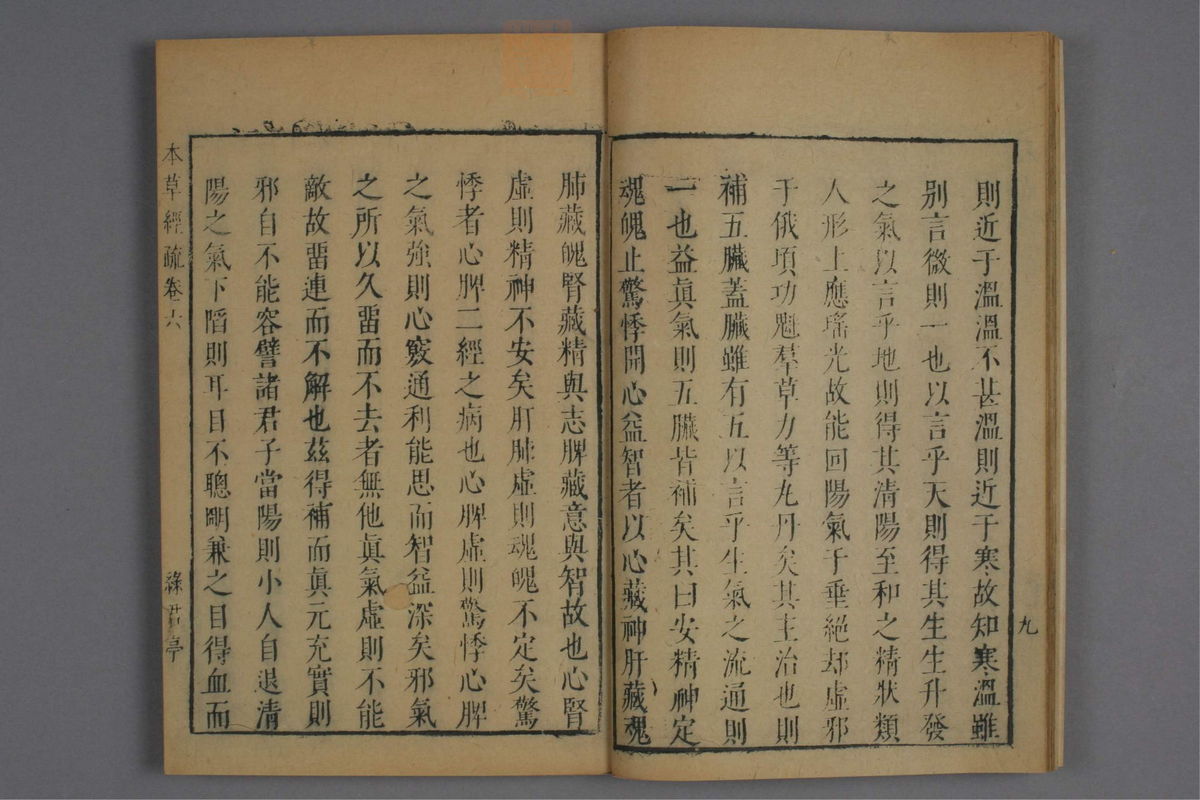 則近于溫溫不甚溫則近于寒故知寒溫雖
別言微則一也以言乎天則得其生生升發
之氣以言乎地則得其清陽至和之精狀類
人形上應瑤光故能回陽氣于垂絕却虛邪
于俄頃功魁羣草力等九丹矣其主治也則
補五臟蓋臟雖有五以言乎生氣之流通則
一也益眞氣則五臟皆補矣其曰安精神定
魂魄止驚悸開心益智者以心藏神肝藏魂
九
肺藏魄腎藏精與志脾藏意與智故也心腎
虛則精神不安矣肝肺虛則魂魄不定矣驚
悸者心脾二經之病也心脾虛則驚悸心脾
之氣強則心竅通利能思而智益深矣邪氣
之所以久畱而不去者無他眞氣虛則不能
敵故畱連而不解也茲得補而眞元充實則
邪自不能容譬諸君子當陽則小人自退清
陽之氣下陷則耳目不聰明兼之目得血而
本草經疏卷六
綠君亭